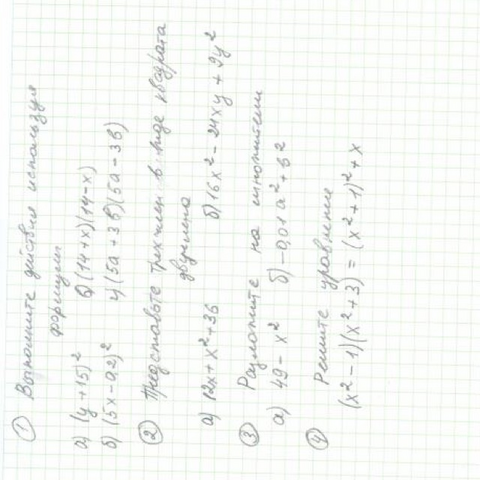 ① Выполните действия используя
формулы
а) (y+15)² в) (14+x)(14-x)
б) (5x-0,2)² г) (5a+3b)(5a-3b)
② Представьте трехчлен в виде квадрата
двучлена
а) 12x+x²+36 б) 16x²-24xy+9y²
③ Разложите на множители
а) 49-x² б) -0,01a²+b²
④ Решите уравнение
(x²-1)(x²+3)=(x²+1)²+x